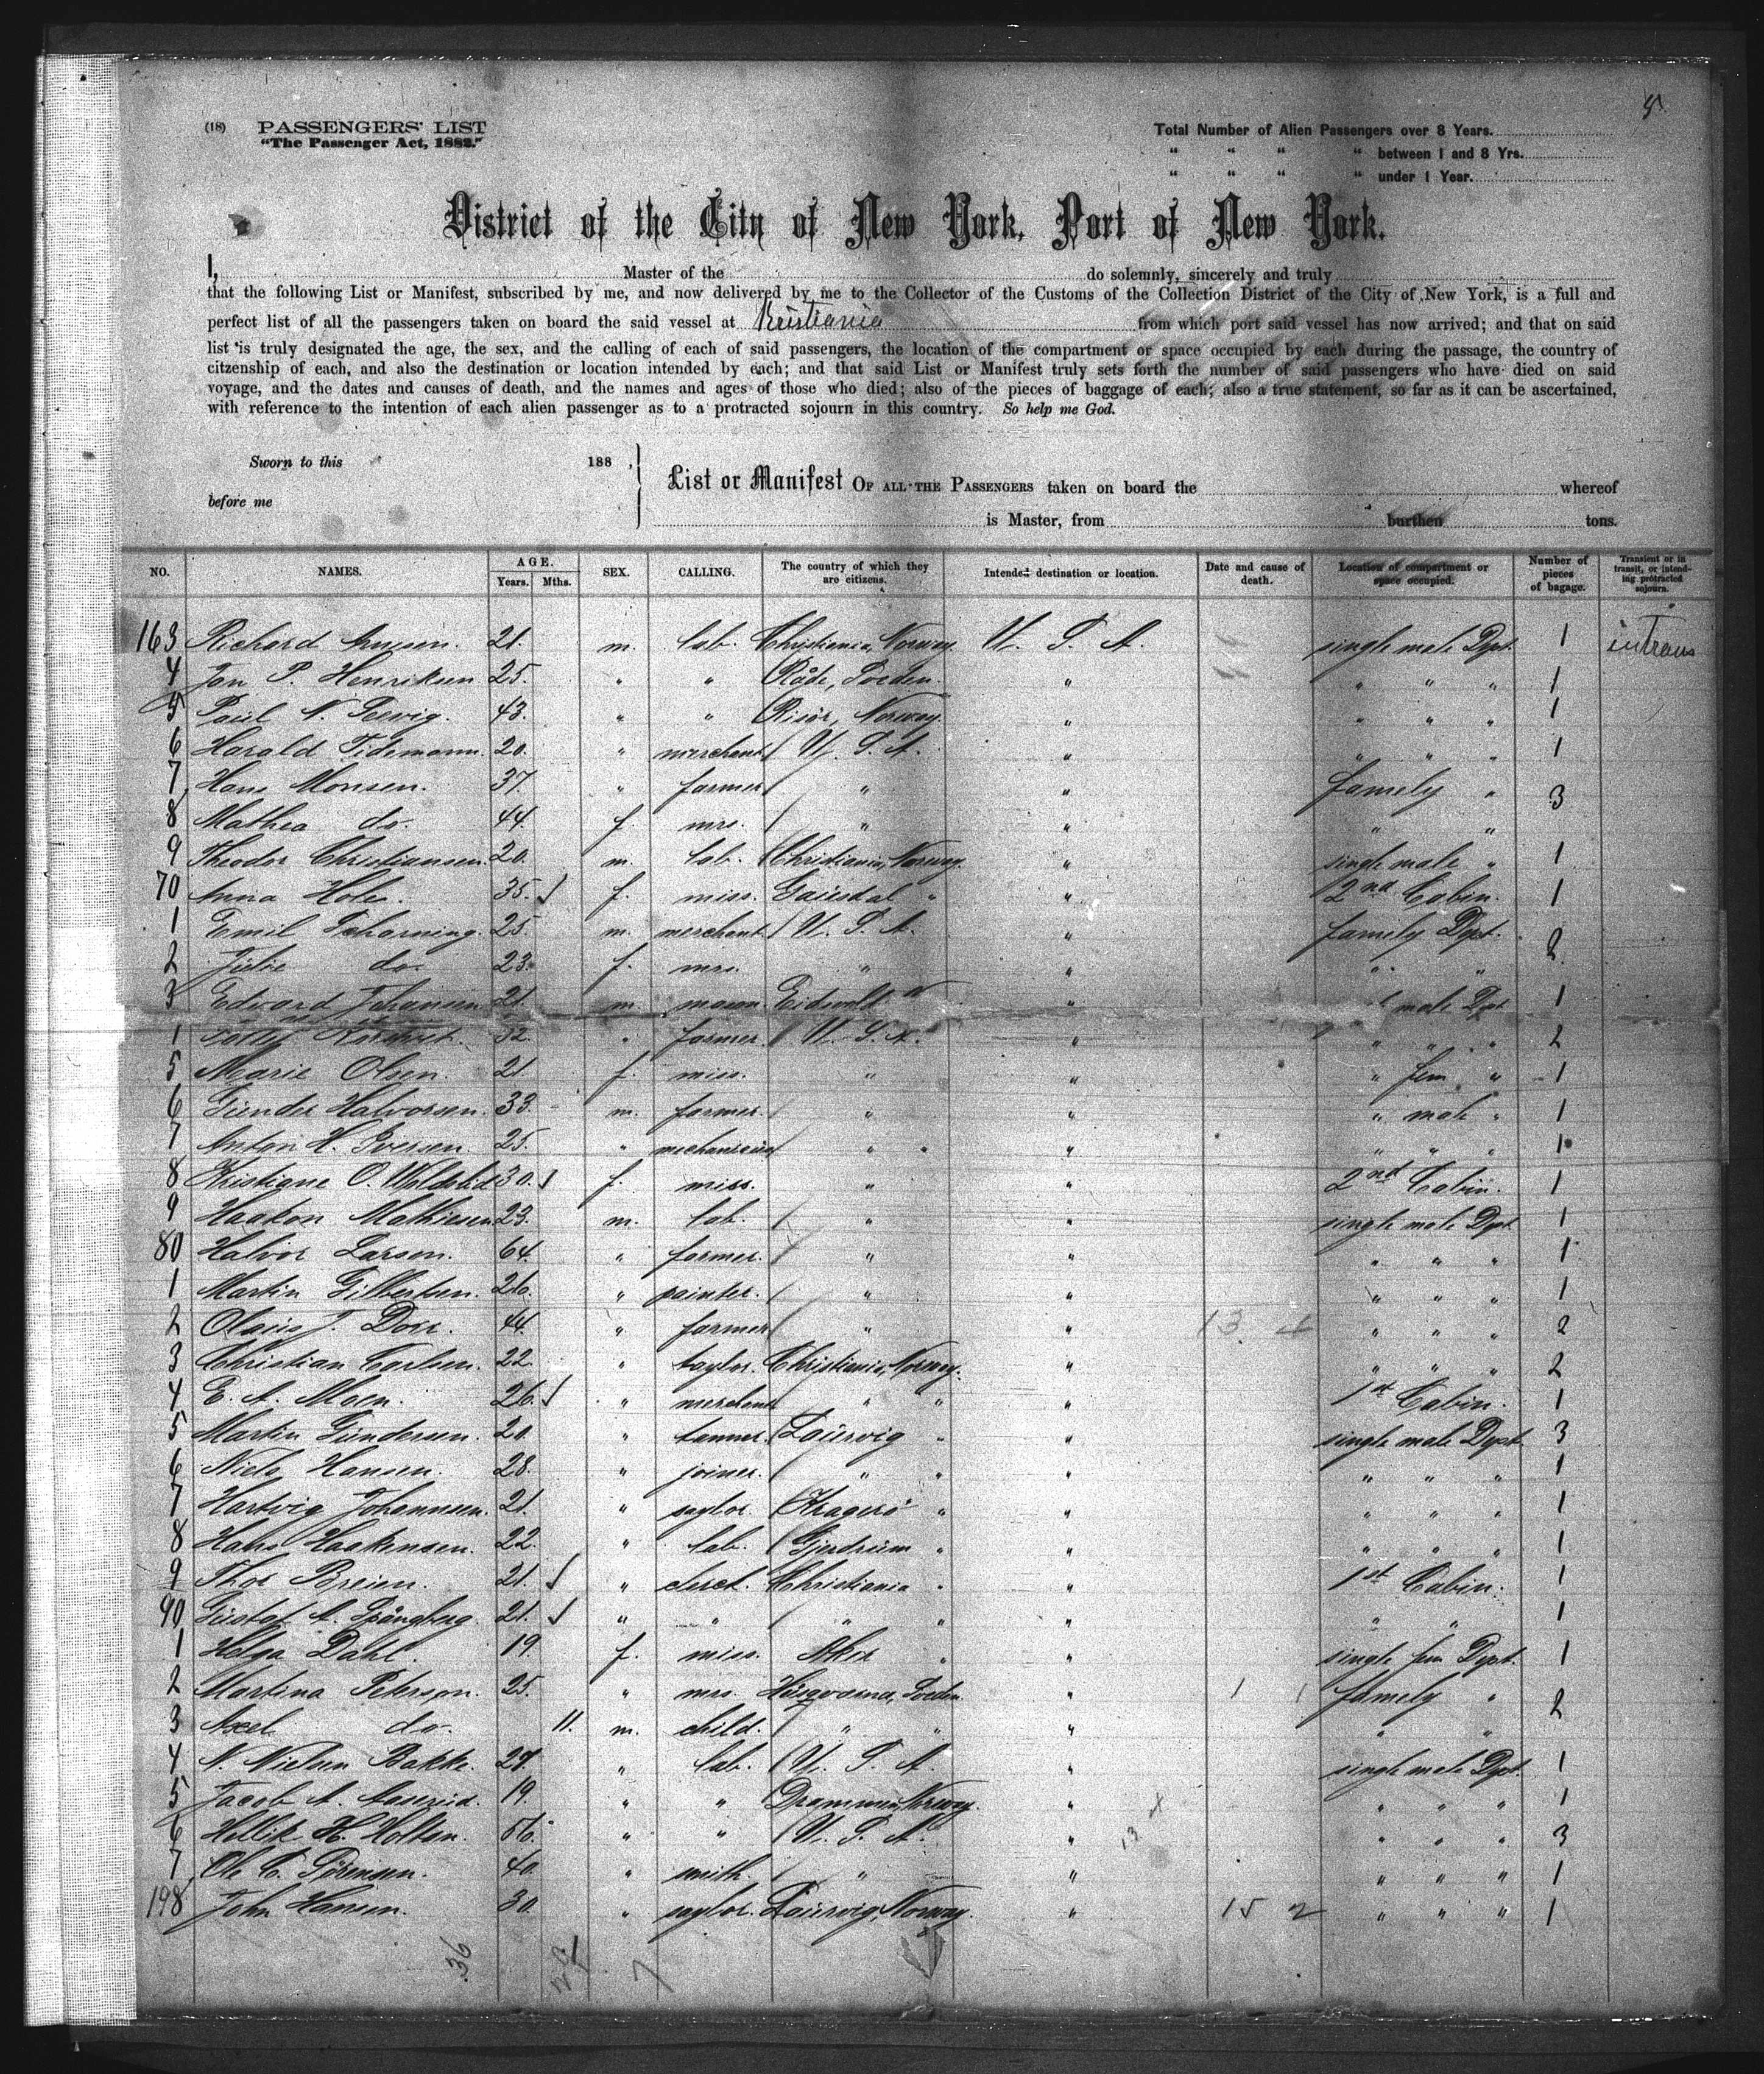 5
(18) PASSENGERS' LIST
"The Passenger Act, 1882."
Total Number of Alien Passengers over 8 Years.
" " " " between 1 and 8 Yrs.
" " " " under 1 Year.
District of the City of New York, Port of New York.
I, Master of the do solemnly, sincerely and truly
that the following List or Manifest, subscribed by me, and now delivered by me to the Collector of the Customs of the Collection District of the City of New York, is a full and
perfect list of all the passengers taken on board the said vessel at Kristiania from which port said vessel has now arrived; and that on said
list is truly designated the age, the sex, and the calling of each of said passengers, the location of the compartment or space occupied by each during the passage, the country of
citzenship of each, and also the destination or location intended by each; and that said List or Manifest truly sets forth the number of said passengers who have died on said
voyage, and the dates and causes of death, and the names and ages of those who died; also of the pieces of baggage of each; also a true statement, so far as it can be ascertained,
with reference to the intention of each alien passenger as to a protracted sojourn in this country. So help me God.
Sworn to this 188 ,
before me
List or Manifest OF ALL THE PASSENGERS taken on board the whereof
is Master, from burthen tons.
NO. NAMES. AGE. Years. Mths. SEX. CALLING. The country of which they are citizens. Intended destination or location. Date and cause of death. Location of compartment or space occupied. Number of pieces of bagage. Transient or in transit, or intending protracted sojourn.
163 Richard 21. m. lab. Christiania, Norway. U. S. A. single male Dpt. 1 intrans
4 Jon P. Henriksen 25. " " Råde, Sveden. " " " " 1
5 Paul N. 43. " " Risör, Norway. " " " " 1
6 Harald Tidemann. 20. " merchant U. S. A. " " " " 1
7 Hans Monsen. 37. " farmer " " famely " 3
8 Mathea do. 44. f. mrs. " " " "
9 Theodor Christiansen. 20. m. lab. Christiania, Norway. " single male " 1
70 Anna Hole. 35. f. miss. Gausdal " " 2nd Cabin. 1
1 Emil Scharning. 25. m. merchant U. S. A. " famely Dpt. 2
2 Julie do. 23. f. mrs. " " " "
3 Edward Johansen 21. m. mason. Eidsvold N " male Dpt 1
32. " farmer. U. S. A. " " " " 2
5 Marie Olsen. 21 f. miss. " " " fem. " 1
6 Gunder Halvorsen. 33. m. farmer. " " " male " 1
7 Anton H. Iversen. 25. " " " " " " " 1
8 Kristiane O. 30. f. miss. " " 2nd Cabin. 1
9 Haakon Mathiesen 23. m. lab. " " single male Dpt. 1
80 Halvor Larsen. 64. " farmer. " " " " " 1
1 Martin Gilbertsen. 26. " painter. " " " " " 1
2 Olaus J. 44. " farmer " " 13 4 " " " 2
3 Christian Carlsen. 22. " taylor. Christiania, Norway. " " " " 2
4 E. A. Moen. 26. " merchant " " " 1st Cabin. 1
5 Martin Gundersen. 20. " tanner. Laurvig " " single male Dpt 3
6 Niels Hansen. 28. " joiner. " " " " " " 1
7 Hartvig Johannsen. 21. " saylor. Kragerö " " " " " 1
8 Hans Haakensen. 22. " lab. Gjerdrum " " " " " 1
9 Thor Breien. 21. " Christiania " " 1st Cabin. 1
90 Gustaf A. Spångberg. 21. " " " " " " " 1
1 Helga Dahl. 19. f. miss. Aker " " single fem Dpt. 1
2 Martina Peterson. 25. " mrs. Husqvarna, Sveden. " 1 1 famely " 2
3 Axel do. 11. m. child. " " " " "
4 N. Nielsen Bakke. 27. " lab. U. S. A. " single male Dpt. 1
5 Jacob A. 19. " " Drammen, Norway. " " " " 1
6 Hellik H. Holtan. 56. " " U. S. A. " 13 4 " " " 3
7 Ole C. Sörensen. 40. " smith. " " " " " 1
198 John Hansen. 30. " saylor. Laurvig, Norway. " 15 2 " " " 1
36
7